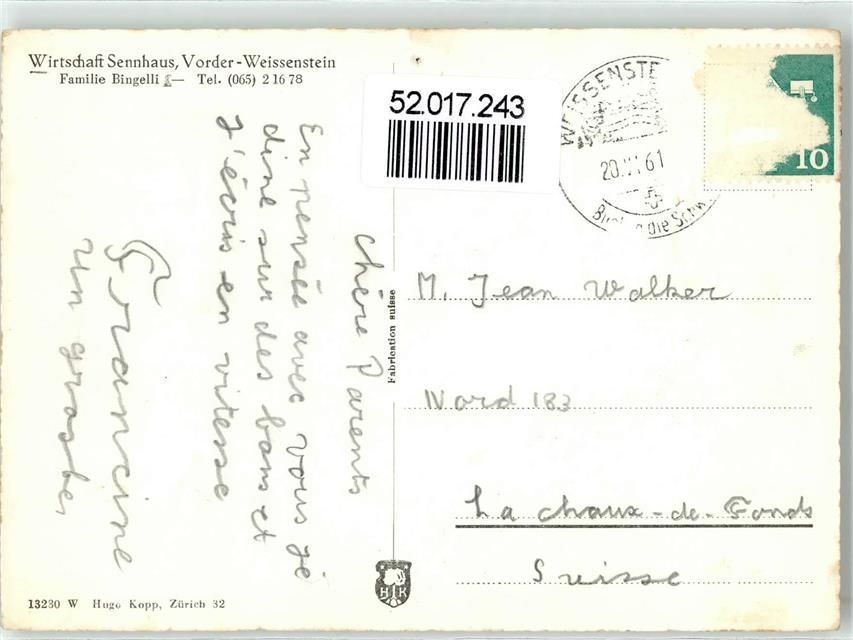 Wirtschaft Sennhaus, Vorder-Weissenstein
Familie Bingelli Tel. (065) 2 16 78
52.017.243
WEISSENSTE
20. 61
die
10
chère Parents
En pensée avec vous je
dine sur des bans et
J'écris en vitesse
Francine
Un gros
Fabrication suisse
M. Jean Walker
Nord 183
La chaux-de-Fonds
Suisse
H K
13230 W Hugo Kopp, Zürich 32